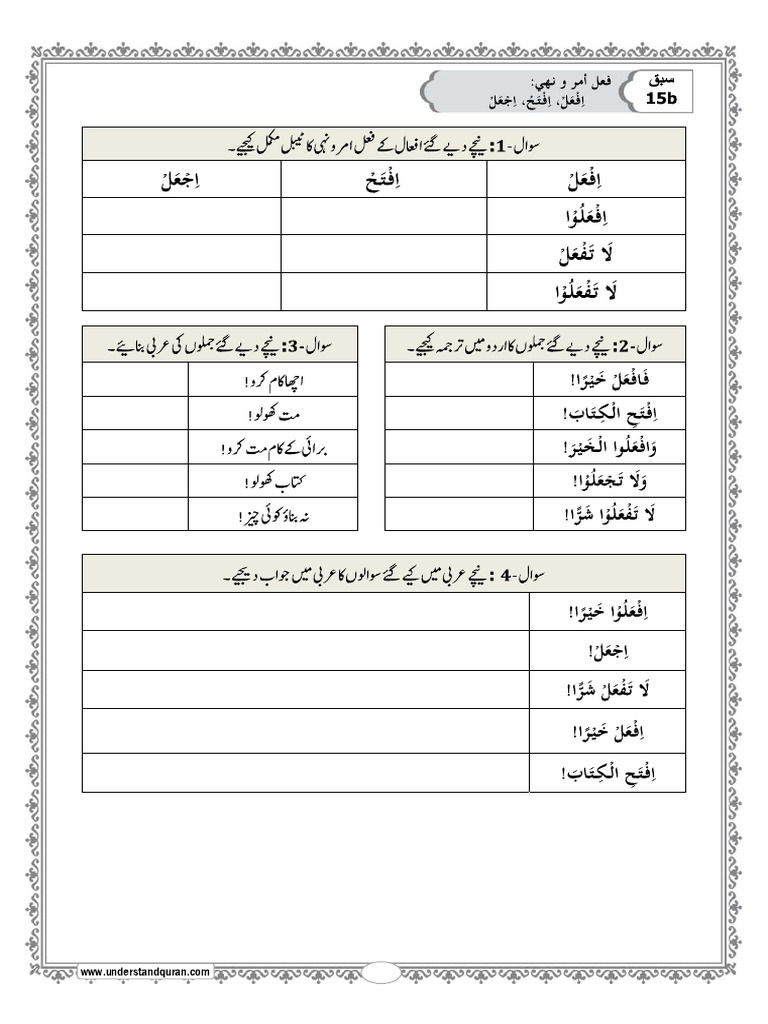 سبق
15b
فعل أمر و نهي:
اِفْعَلْ، اِفْتَحْ، اِجْعَلْ
سوال-1: نیچے دیے گئے افعال کے فعل امر و نہی کا ٹیبل مکمل کیجیے۔
اِفْعَلْ اِفْتَحْ اِجْعَلْ
اِفْعَلُوْا
لَا تَفْعَلْ
لَا تَفْعَلُوْا
سوال-2: نیچے دیے گئے جملوں کا اردو میں ترجمہ کیجیے۔
فَافْعَلْ خَيْرًا!
اِفْتَحِ الْكِتَابَ!
وَافْعَلُوا الْخَيْرَ!
وَلَا تَجْعَلُوْا!
لَا تَفْعَلُوْا شَرًّا!
سوال-3: نیچے دیے گئے جملوں کی عربی بنائیے۔
اچھا کام کرو!
مت کھولو!
برائی کے کام مت کرو!
کتاب کھولو!
نہ بناؤ کوئی چیز!
سوال-4: نیچے عربی میں کیے گئے سوالوں کا عربی میں جواب دیجیے۔
اِفْعَلُوْا خَيْرًا!
اِجْعَلْ!
لَا تَفْعَلْ شَرًّا!
اِفْعَلْ خَيْرًا!
اِفْتَحِ الْكِتَابَ!
www.understandquran.com